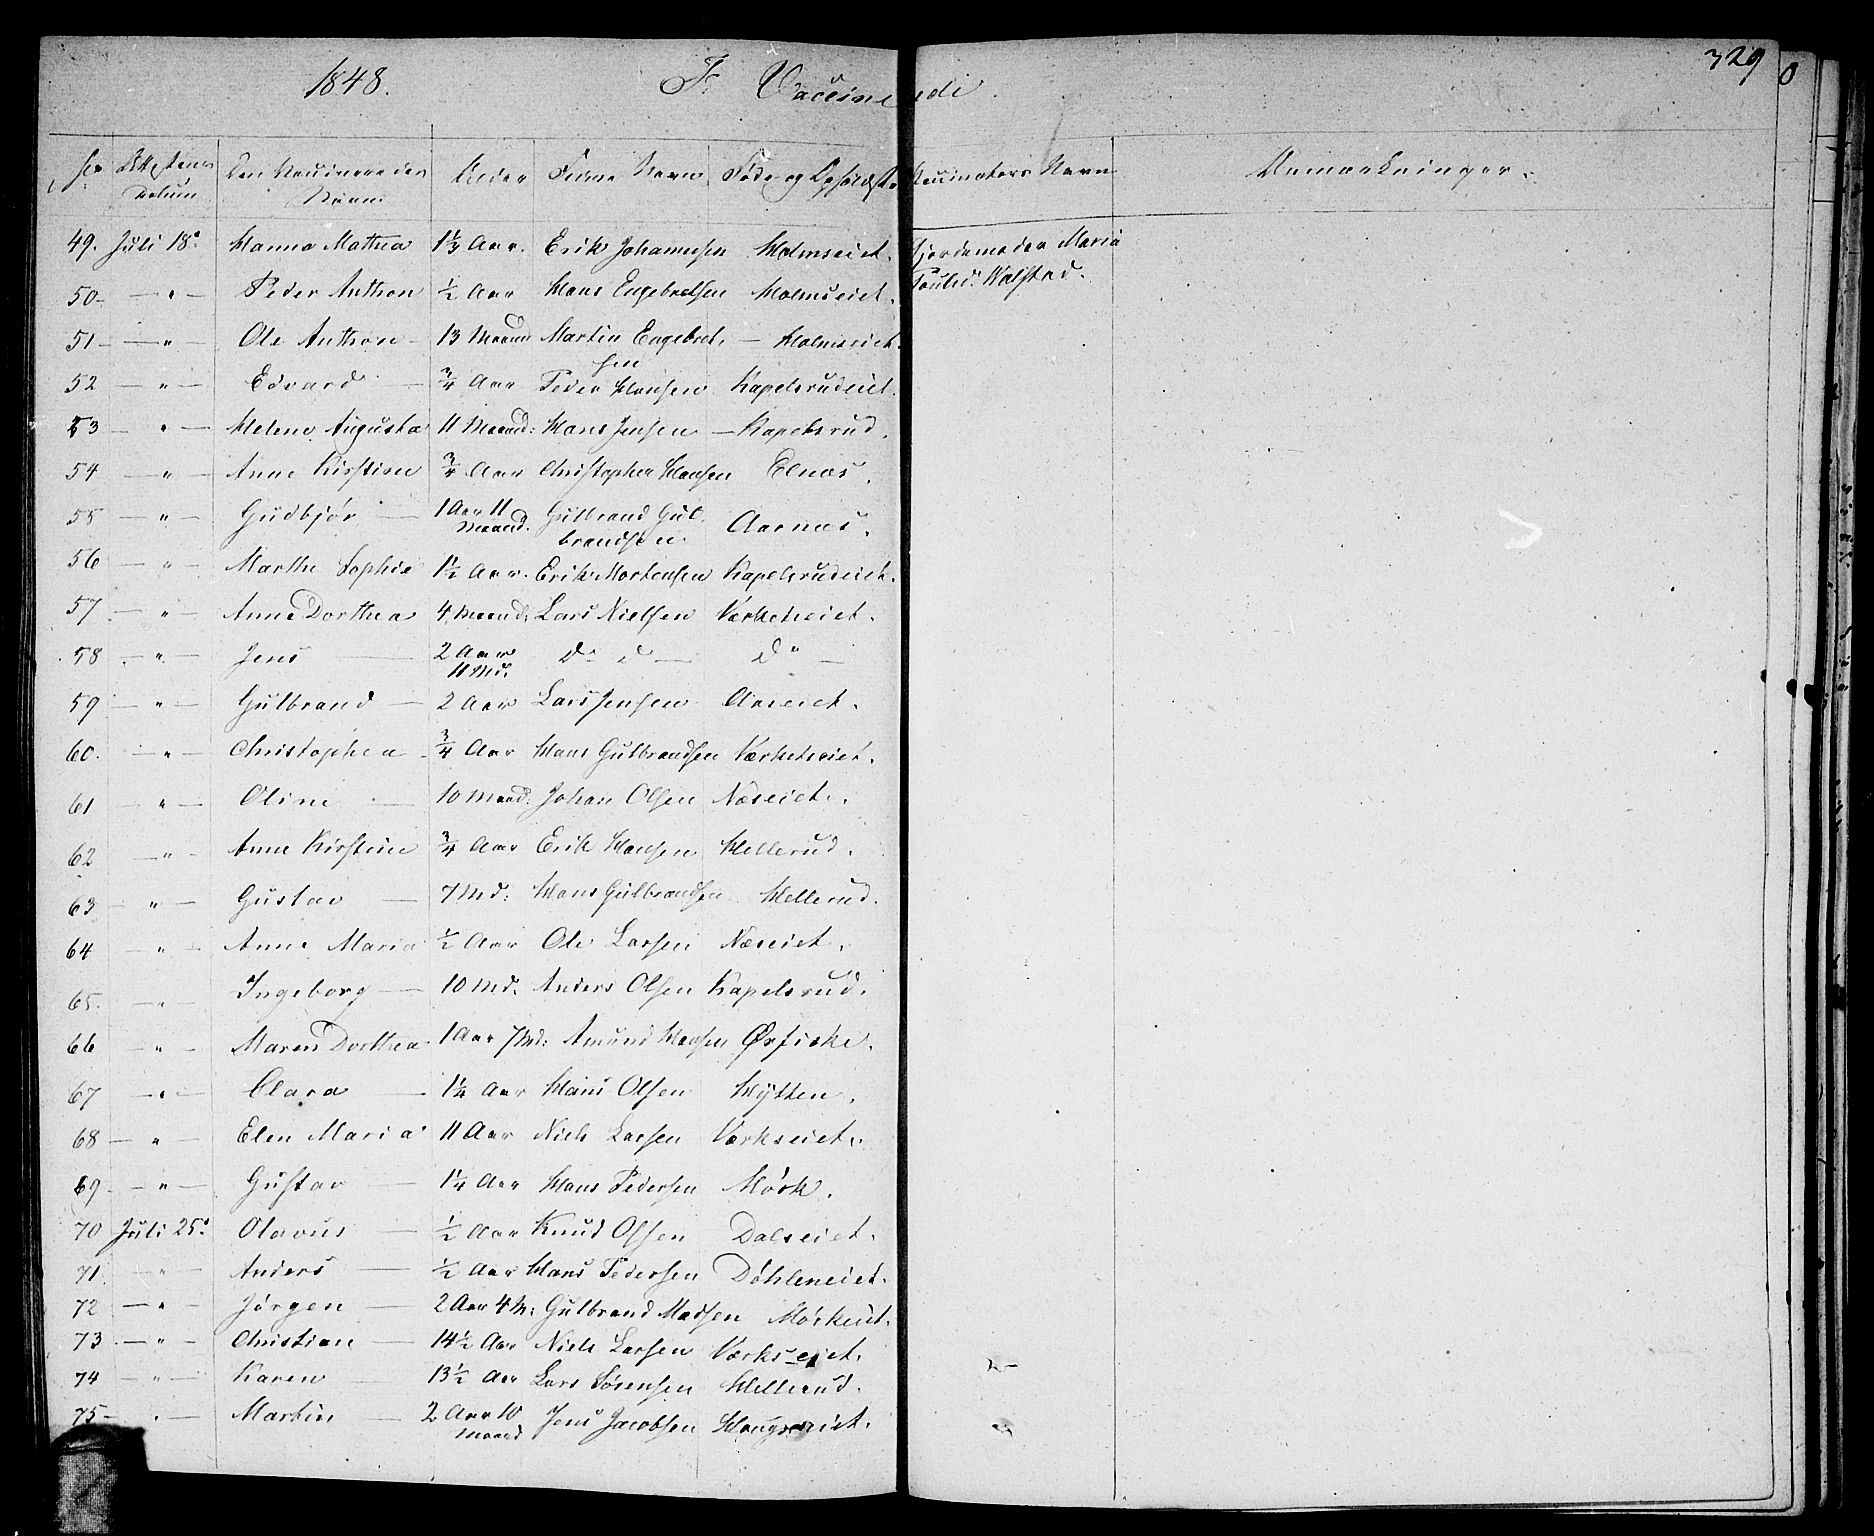 1848. F. Vaccinerede 329
No Attestens Datum Den Vaccineredes Navn Alder Faders Navn Føde og Opholdst. Vaccinators Navn Anmærkninger.
49. Juli 18. Hanna Mathea 1⅓ Aar. Erik Johannesen Holmseiet. Jordemoder Maria
50 — " — Peder Anthon ½ Aar Hans Engebretsen Holmseiet. Poulsd. Walstad.
51 — " — Ole Anthon — 13 Maaned Martin Engebret- — Holmseiet
sen
52 — " — Edvard — ¾ Aar Peder Hansen Kapelsrudeiet.
53 — " — Helene Augusta 11 Maaned: Hans Jensen — Kapelsrud.
54 — " — Anne Kirstine ¾ Aar Christopher Hansen Elnæs.
55 — " — Gudbjør — 1 Aar 11 Maaned. Gulbrand Gul- Aarnæs.
brandsen
56 — " — Marthe Sophie 1½ Aar. Erik Mortensen Kapelsrudeiet.
57 — " — Anne Dorthea 4 Maaned: Lars Nielsen Værketseiet.
58 — " — Jens — 2 Aar 11 Md. d° d° — d° —
59 — " — Gulbrand — 2 Aar Lars Jensen Aaseiet.
60. — " — Christophea — ¾ Aar Hans Gulbrandsen Værketseiet.
61 — " — Oline — 10 Maaned: Johan Olsen Næseiet.
62 — " — Anne Kirstine ¾ Aar Erik Hansen Hellerud.
63 — " — Gustav — 7 Md: Hans Gulbrandsen Hellerud.
64 — " — Anne Maria ½ Aar Ole Larsen Næseiet.
65. — " — Ingeborg — 10 Md. Anders Olsen Kapelsrud.
66 — " — Maren Dorthea 1 Aar 7 Md: Amund Hansen Ørfiske.
67 — " — Clara — 1¼ Aar Hans Olsen Hytten.
68 — " — Elen Maria 11 Aar Niels Larsen Værkseiet.
69 — " — Gustav — 1¼ Aar Hans Pedersen Mørk.
70 Juli 25. Olavus — ½ Aar Knud Olsen Dalseiet.
71 — " — Anders — ½ Aar Hans Pedersen Døhleneiet.
72 — " — Jørgen — 2 Aar 4 M: Gulbrand Madsen Mørkeiet.
73 — " — Christian — 14½ Aar Niels Larsen Værkseiet.
74 — " — Karen — 13½ Aar Lars Sørensen Hellerud.
75 — " — Martin — 2 Aar 10 Maaned Jens Jacobsen Haugseiet.